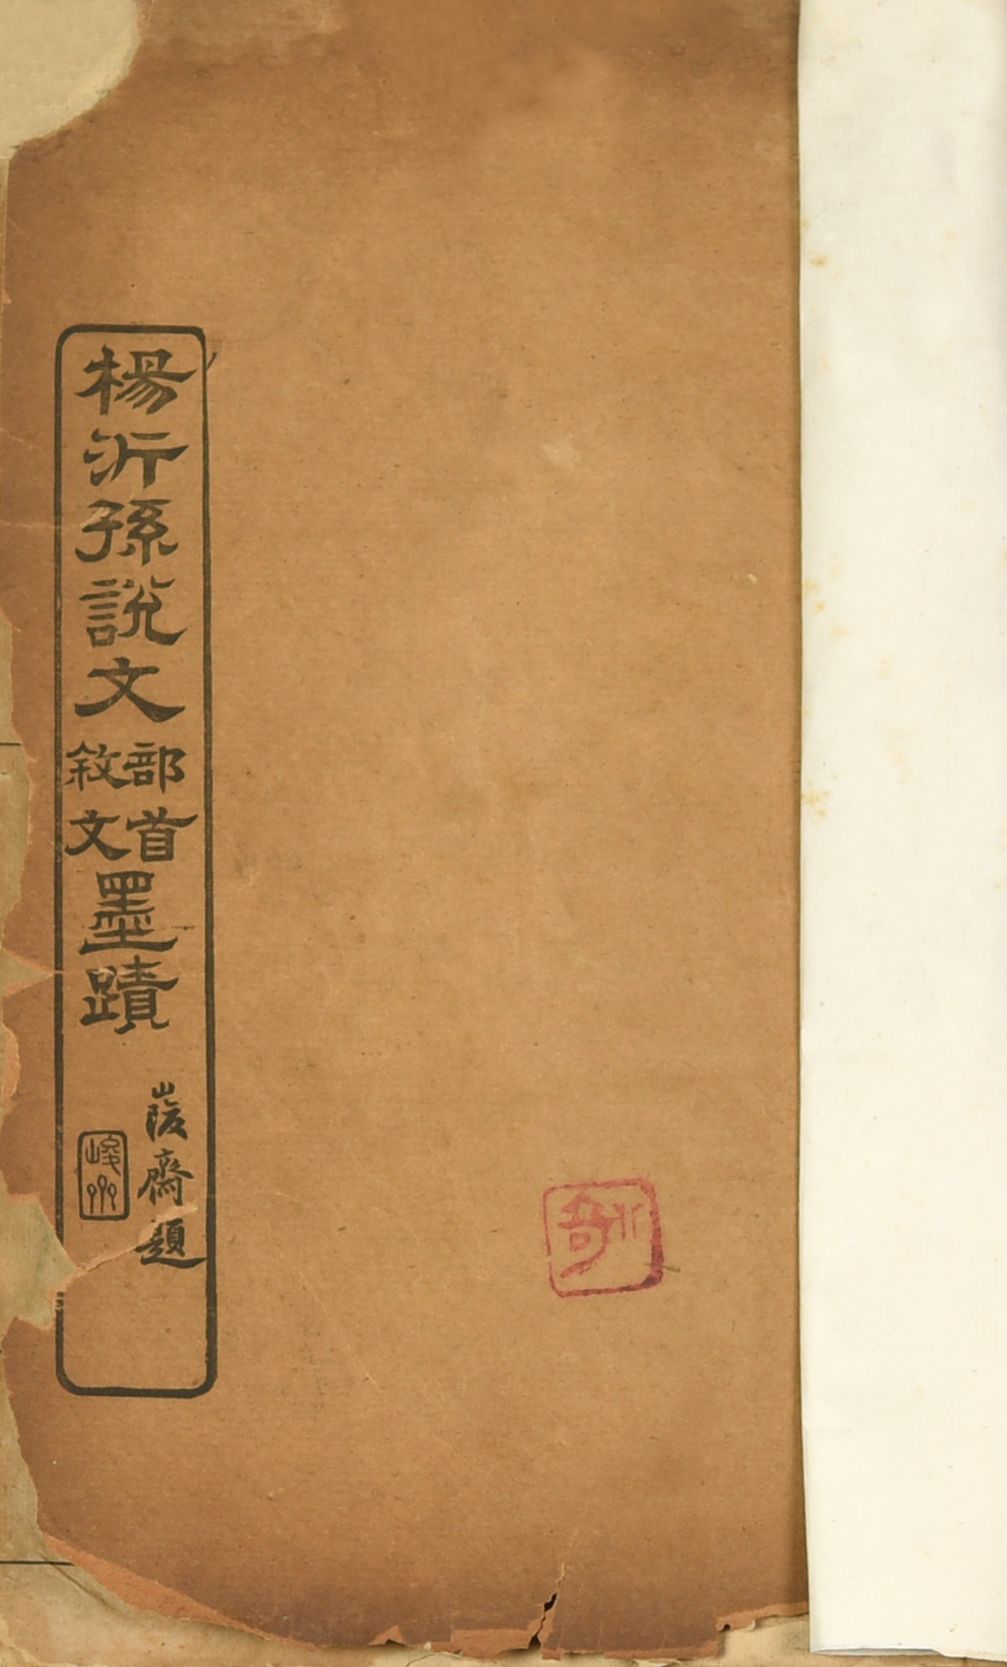 楊沂孫說文
部首
敘文
墨蹟
齋題
峻州